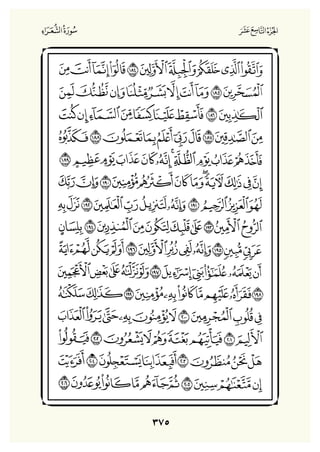 الجزء التاسع عشر
سورة الشعراء
وَٱتَّقُوا۟ ٱلَّذِى خَلَقَكُمْ وَٱلْجِبِلَّةَ ٱلْأَوَّلِينَ ١٨٤ قَالُوٓا۟ إِنَّمَآ أَنتَ مِنَ
ٱلْمُسَحَّرِينَ ١٨٥ وَمَآ أَنتَ إِلَّا بَشَرٌ مِّثْلُنَا وَإِن نَّظُنُّكَ لَمِنَ
ٱلْكَٰذِبِينَ ١٨٦ فَأَسْقِطْ عَلَيْنَا كِسَفًا مِّنَ ٱلسَّمَآءِ إِن كُنتَ
مِنَ ٱلصَّٰدِقِينَ ١٨٧ قَالَ رَبِّىٓ أَعْلَمُ بِمَا تَعْمَلُونَ ١٨٨ فَكَذَّبُوهُ
فَأَخَذَهُمْ عَذَابُ يَوْمِ ٱلظُّلَّةِ ۚ إِنَّهُۥ كَانَ عَذَابَ يَوْمٍ عَظِيمٍ ١٨٩
إِنَّ فِى ذَٰلِكَ لَءَايَةً ۖ وَمَا كَانَ أَكْثَرُهُم مُّؤْمِنِينَ ١٩٠ وَإِنَّ رَبَّكَ
لَهُوَ ٱلْعَزِيزُ ٱلرَّحِيمُ ١٩١ وَإِنَّهُۥ لَتَنزِيلُ رَبِّ ٱلْعَٰلَمِينَ ١٩٢ نَزَلَ بِهِ
ٱلرُّوحُ ٱلْأَمِينُ ١٩٣ عَلَىٰ قَلْبِكَ لِتَكُونَ مِنَ ٱلْمُنذِرِينَ ١٩٤ بِلِسَانٍ
عَرَبِىٍّ مُّبِينٍ ١٩٥ وَإِنَّهُۥ لَفِى زُبُرِ ٱلْأَوَّلِينَ ١٩٦ أَوَلَمْ يَكُن لَّهُمْ ءَايَةً
أَن يَعْلَمَهُۥ عُلَمَٰٓؤُا۟ بَنِىٓ إِسْرَٰٓءِيلَ ١٩٧ وَلَوْ نَزَّلْنَٰهُ عَلَىٰ بَعْضِ ٱلْأَعْجَمِينَ
١٩٨ فَقَرَأَهُۥ عَلَيْهِم مَّا كَانُوا۟ بِهِۦ مُؤْمِنِينَ ١٩٩ كَذَٰلِكَ سَلَكْنَٰهُ
فِى قُلُوبِ ٱلْمُجْرِمِينَ ٢٠٠ لَا يُؤْمِنُونَ بِهِۦ حَتَّىٰ يَرَوُا۟ ٱلْعَذَابَ
ٱلْأَلِيمَ ٢٠١ فَيَأْتِيَهُم بَغْتَةً وَهُمْ لَا يَشْعُرُونَ ٢٠٢ فَيَقُولُوا۟
هَلْ نَحْنُ مُنظَرُونَ ٢٠٣ أَفَبِعَذَابِنَا يَسْتَعْجِلُونَ ٢٠٤ أَفَرَءَيْتَ
إِن مَّتَّعْنَٰهُمْ سِنِينَ ٢٠٥ ثُمَّ جَآءَهُم مَّا كَانُوا۟ يُوعَدُونَ ٢٠٦
٣٧٥